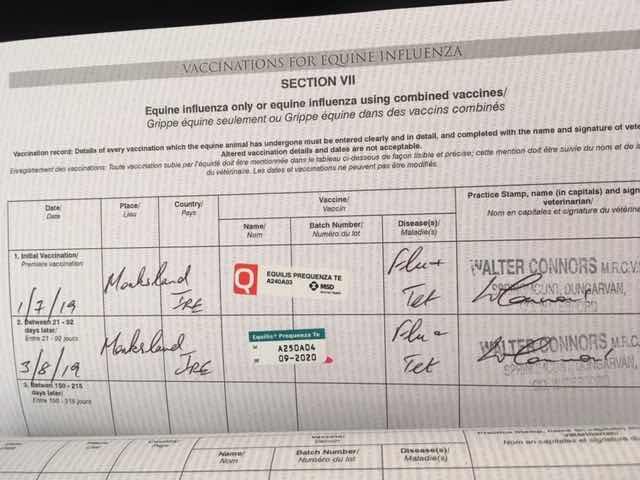 VACCINATIONS FOR EQUINE INFLUENZA
SECTION VII
Equine influenza only or equine influenza using combined vaccines/
Grippe équine seulement ou Grippe équine dans des vaccins combinés
Vaccination record: Details of every vaccination which the equine animal has undergone must be entered clearly and in detail, and completed with the name and signature of
Altered vaccination details and dates are not acceptable.
Enregistrement des vaccinations: Toute vaccination subie par l'équidé doit être mentionnée dans le tableau ci-dessous de façon lisible et précise; cette mention doit être suivie du nom et de
du vétérinaire. Les dates et vaccinations ne peuvent pas être modifiés.
Date/
Date
Place/
Lieu
Country/
Pays
Vaccine/
Vaccin
Name/
Nom
Batch Number/
Numéro du lot
Disease(s)/
Maladie(s)
Practice Stamp, name (in capitals) and
veterinarian/
Nom en capitales et signature du
1. Initial Vaccination/
Première vaccination
1/7/19
Monksland
IRE
EQUILIS PREQUENZA TE
A240A03
MSD
Flu +
Tet
WALTER CONNORS M.R.C.V.S
DUNGARVAN,
2. Between 21 - 92
days later/
Entre 21 - 92 jours
3/8/19
Monksland
IRE
Equilis® Prequenza Te
A250A04
09-2020
Flu +
Tet
WALTER CONNORS M.R.C.
DUNGARVAN,
3. Between 150 - 215
days later/
Entre 150 - 215 jours
Date
Place/
Lieu
Country/
Pays
Vaccine/
Vaccin
Name/
Nom
Batch Number/
Numéro du lot
Disease(s)/
Maladie(s)
Practice Stamp, name (in capitals)
veterinarian/
Nom en capitales et signature du